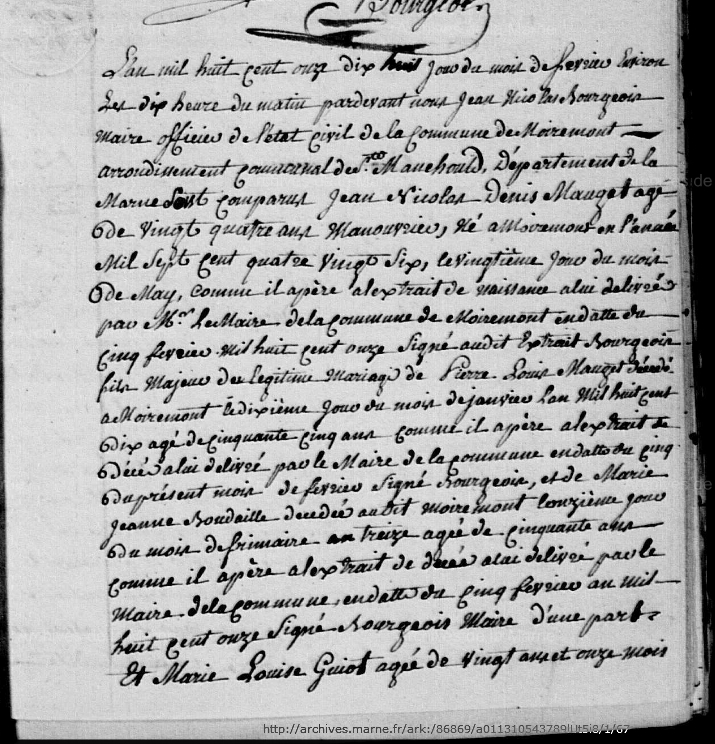 Bourgeois
L'an mil huit cent onze dix huit jour du mois de fevrier Environ
Les dix heure du matin pardevant nous Jean Nicolas Bourgeois
Maire officier de l'etat civil de la Commune de Moiremont
arrondissement communal de Ste Manehould, Département de la
Marne Sont comparus Jean Nicolas Denis Mauget agé
de vingt quatre ans Manouvrier, Né a Moiremont en l'année
Mil Sept cent quatre vingt Six, le vingtième jour du mois
de May, comme il apère a lextrait de naissance a lui delivré
par Mr. Le Maire de la commune de Moiremont en datte du
Cinq fevrier Mil huit cent onze Signé audit Extrait Bourgeois
fils Majeur de Legitime Mariage de Pierre Louis Mauget décédé
a Moiremont le dixième jour du mois de janvier Lan Mil huit cent
dix agé de cinquante cinq ans comme il apère a lextrait de
décée a lui delivré par le Maire de la commune en datte du cinq
du présent mois de fevrier Signé Bourgeois, et de Marie
Jeanne Boudaille decedée au dit Moiremont Lonzième jour
du mois de frimaire an treize agée de cinquante ans
comme il apère a lextrait de decée a lui delivré par le
Maire de la commune, en datte du cinq fevrier an mil
huit cent onze Signé Bourgeois Maire d'une part
Et Marie Louise Guiot agée de vingt ans et onze mois
http://archives.marne.fr/ark:/86869/a011310543789lUt5i8/1/67